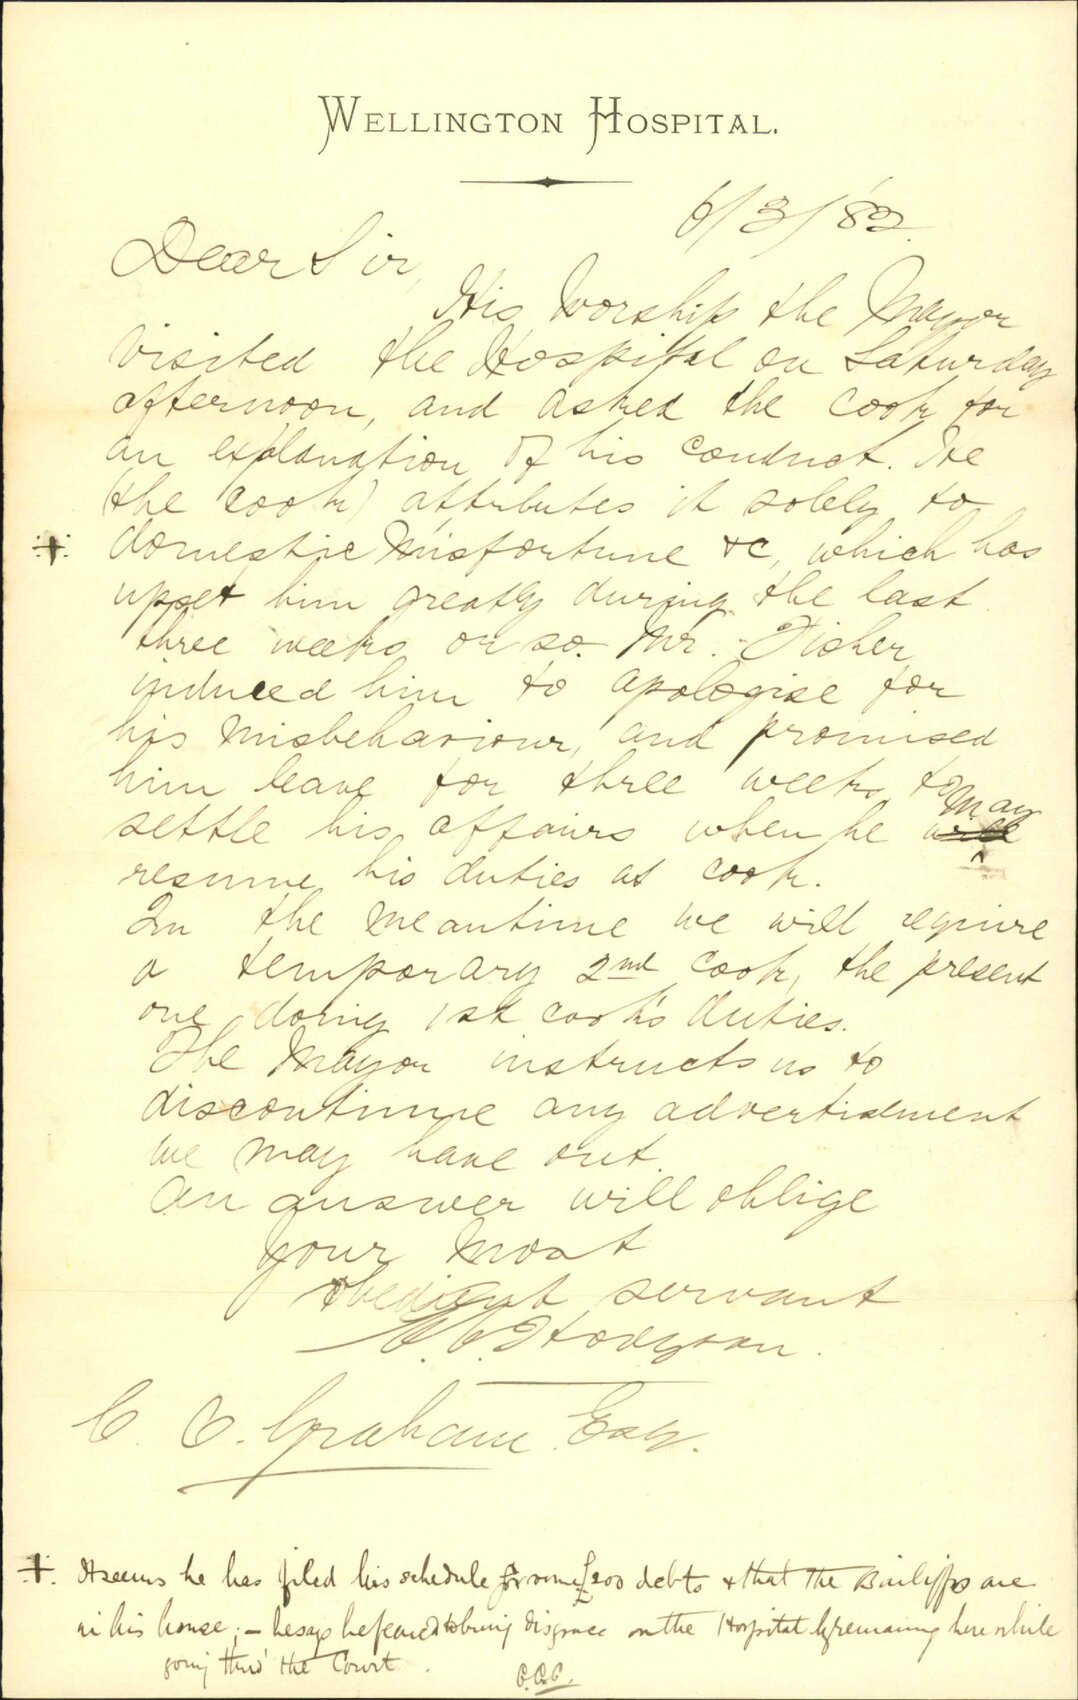 WELLINGTON HOSPITAL.
6/3/'82.
Dear Sir,
His Worship the Mayor
visited the Hospital on Saturday
afternoon, and asked the cook for
an explanation of his conduct. He
(the cook) attributes it solely to
domestic misfortune &c, which has
upset him greatly during the last
three weeks or so. Mr. Fisher
induced him to apologise for
his misbehaviour, and promised
him leave for three weeks to
settle his affairs when he will may
resume his duties as cook.
In the meantime we will require
a temporary 2nd cook, the present
one doing 1st cook's duties.
The Mayor instructs us to
discontinue any advertisment
we may have out.
An answer will oblige
your most
obedient servant
Hodgson.
C. C. Graham Esq.
It seems he has filed his schedule for some £200 debts & that the Bailiffs are
in his house; – he says he feared to bring disgrace on the Hospital by remaining here while
going thro' the Court.